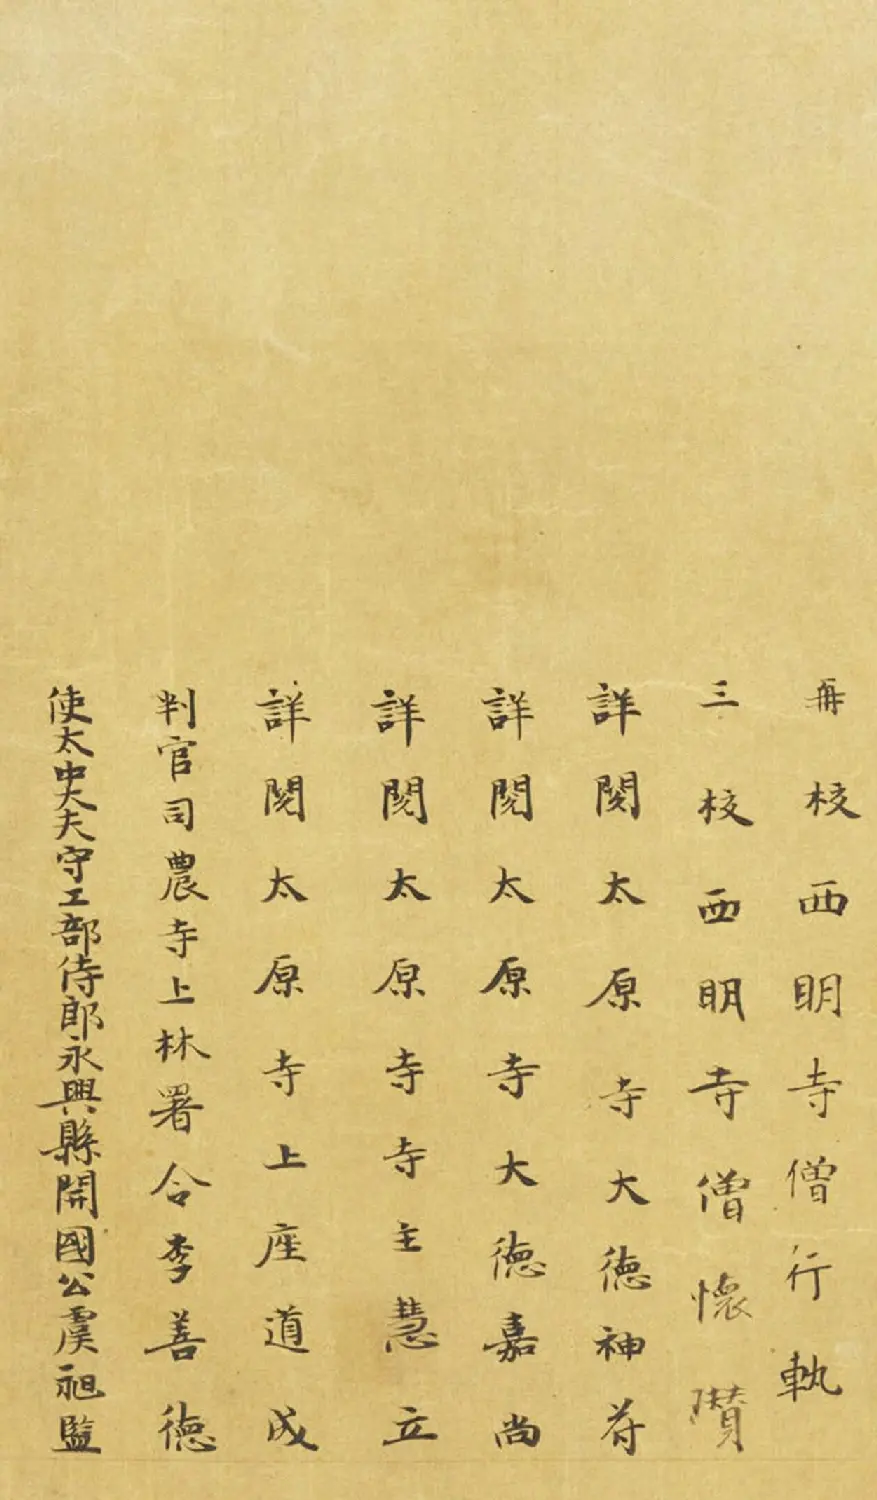 再校西明寺僧行軌
三校西明寺僧懷瓚
詳閱太原寺大德神苻
詳閱太原寺大德嘉尚
詳閱太原寺寺主慧立
詳閱太原寺上座道成
判官司農寺上林署令李善德
使太中大夫守工部侍郎永興縣開國公虞昶監